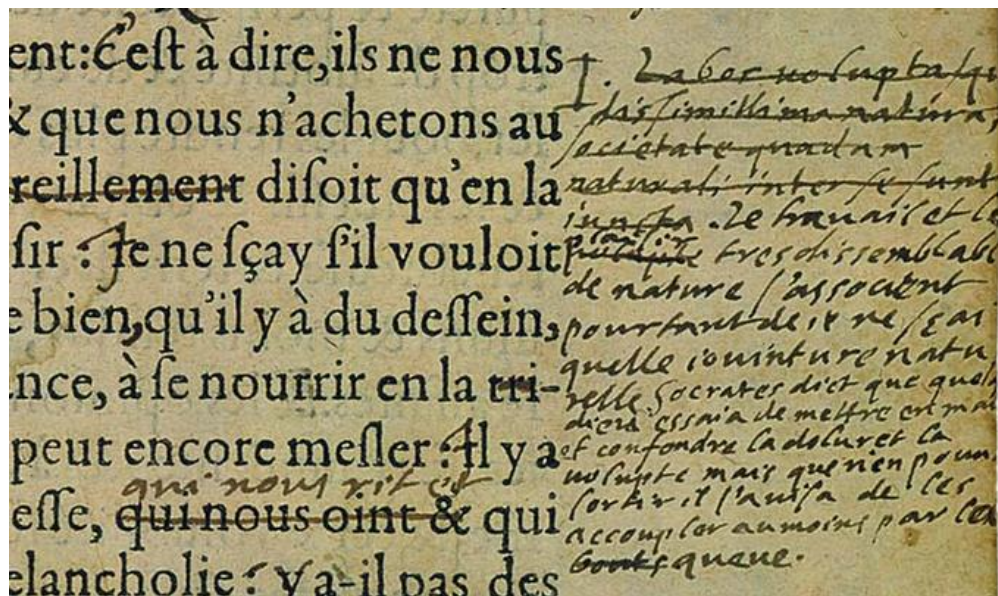 ent:C'eſt à dire,ils ne nous
& que nous n'achetons au
reillement diſoit qu'en la
ſir : Je ne ſçay ſ'il vouloit
e bien,qu'il y à du deſſein,
nce, à ſe nourrir en la tri-
peut encore meſler : Il y a
qui nous rit et
eſſe, qui nous oint & qui
elancholie : Y a-il pas des
†. Labor uoluptaſq
diſſimillima natura,
ſocietate quadam
naturali inter ſe ſunt
iuncta . Le trauail et le
plaisir tresdissemblable
de nature ſ'associent
pourtant de ie ne ſçai
quelle iouinture natu
relle Socrates dict que quel
dieu essaia de mettre en mas
et confondre la dolur et la
uolupte mais que n'en pouu
ſortir il ſ'auiſa de les
accoupler aumoins par
bouts queue.